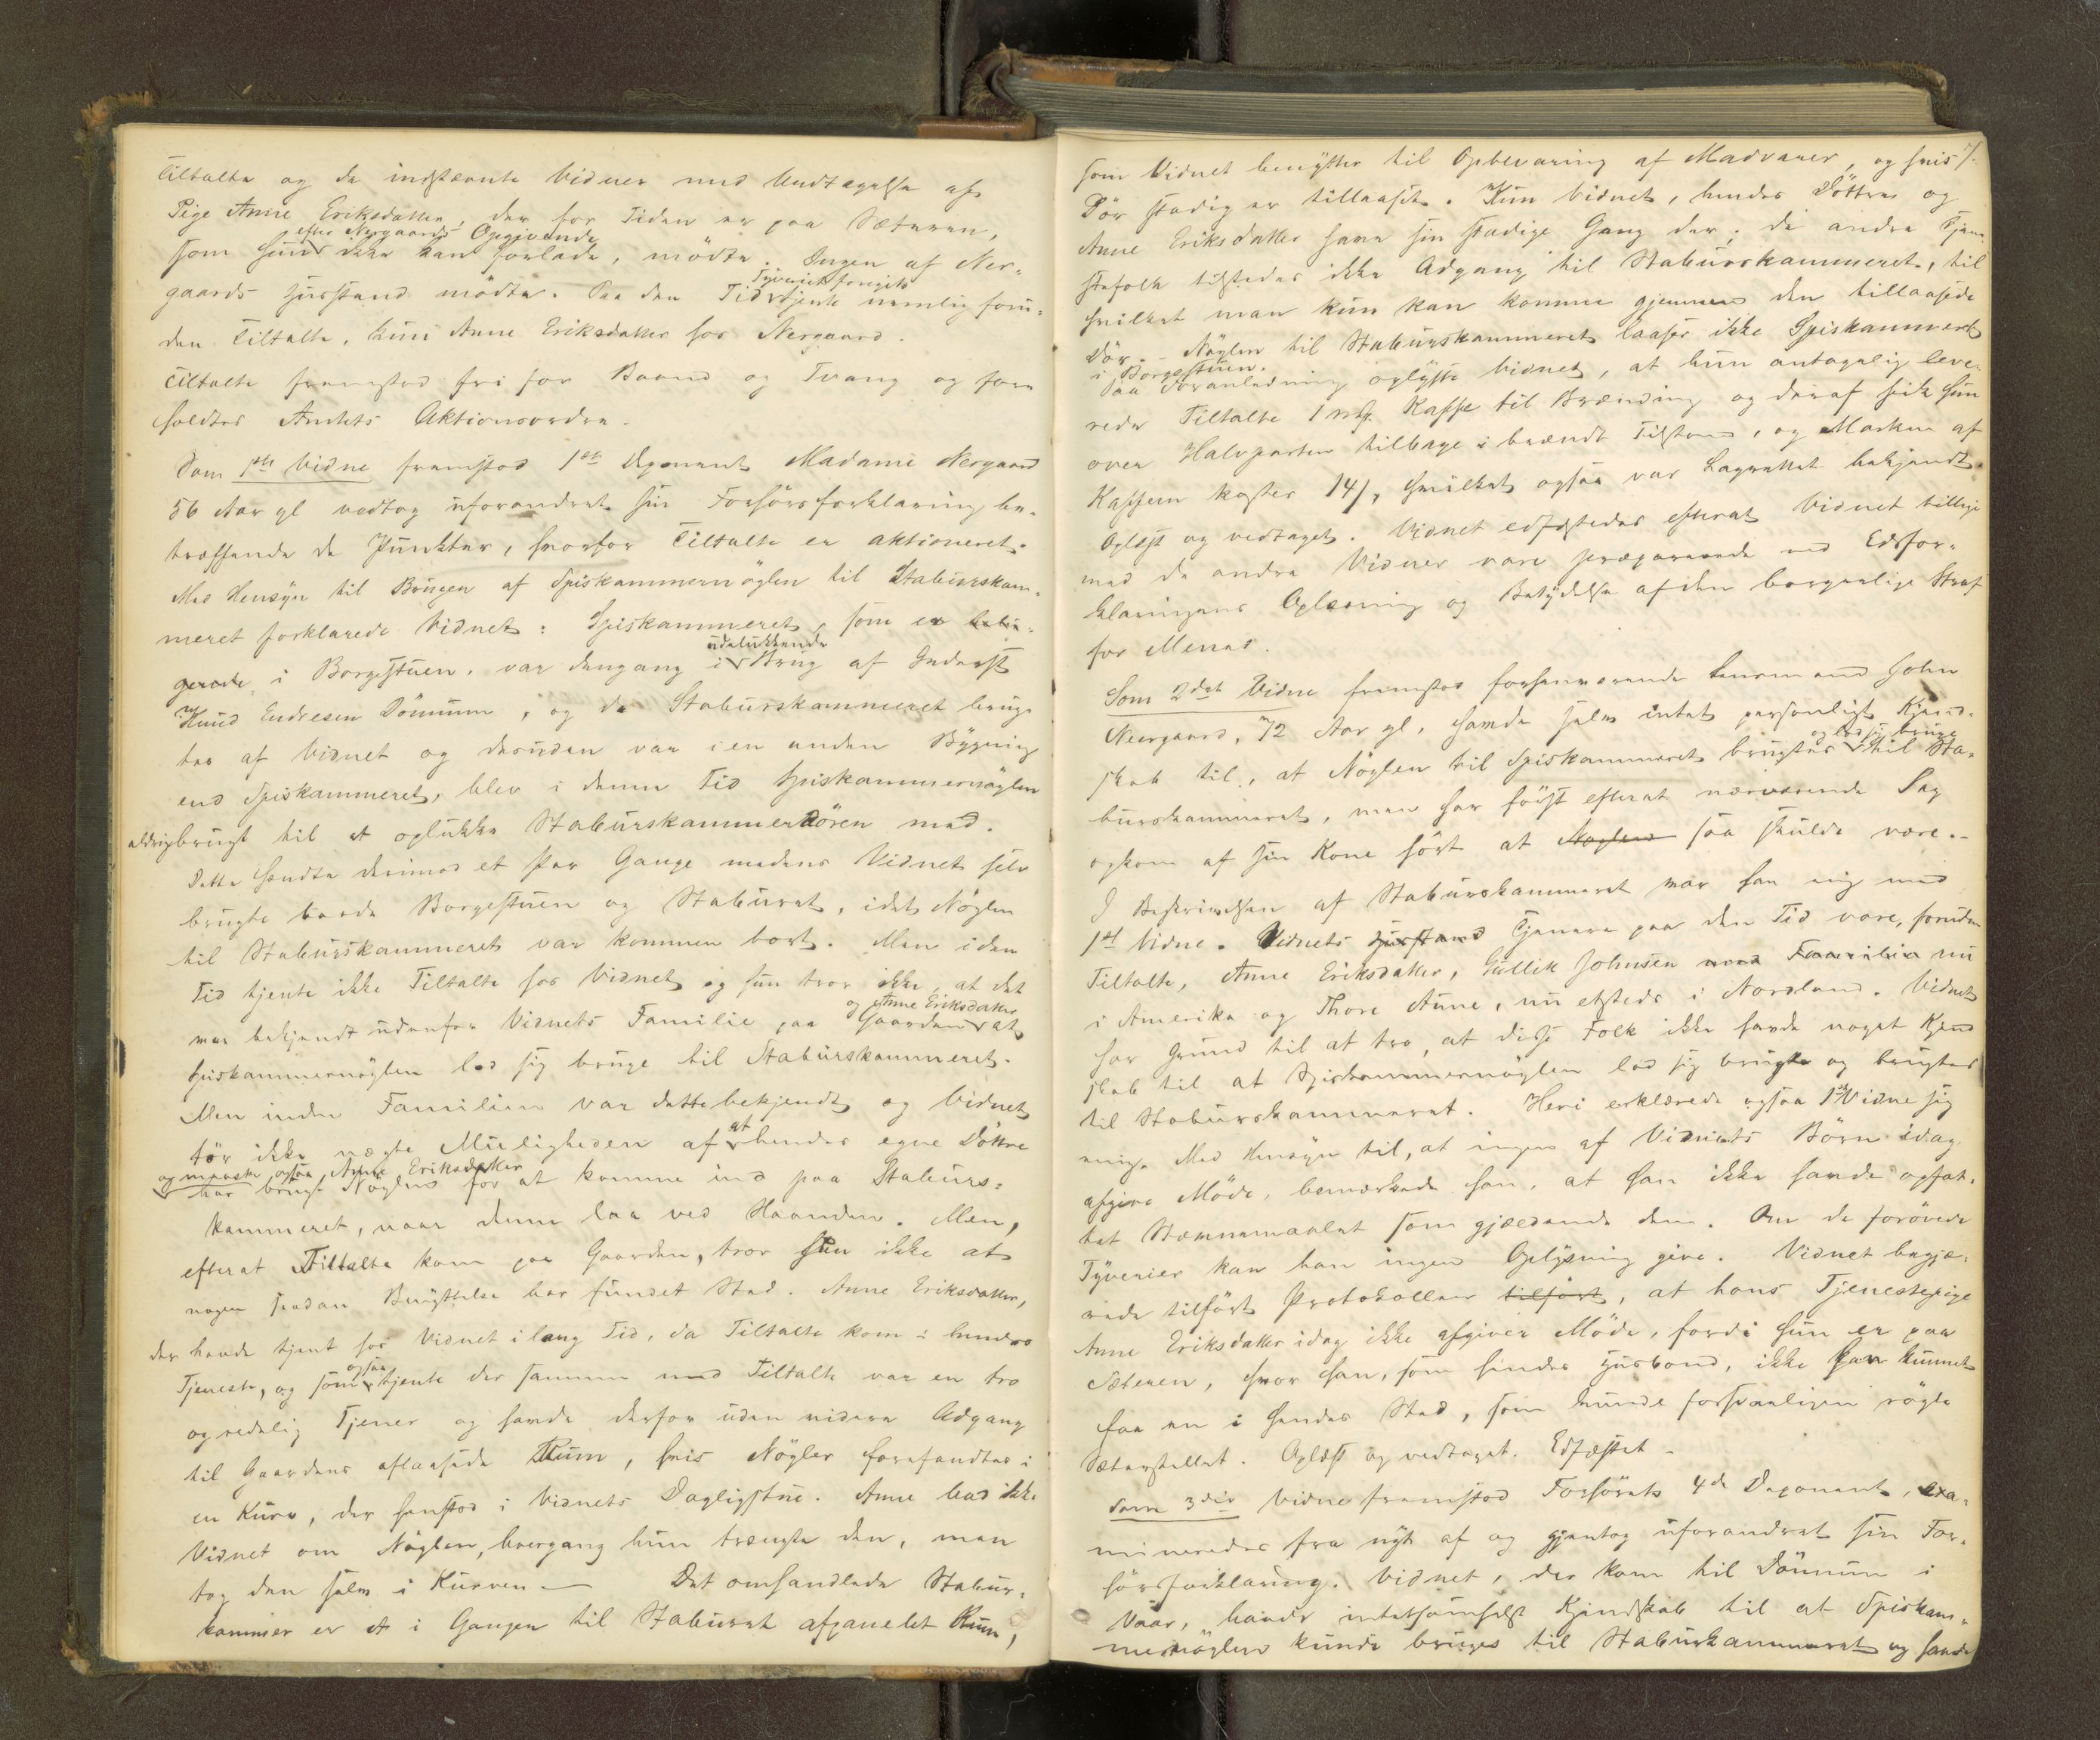 Tiltalte og de indstevnte Vidner med Undtagelse af
Pige Anne Eriksdatter, der for Tiden er paa Sæteren,
som hun efter Nergaards Opgivende ikke kan forlade, mødte. Ingen af Ner-
gaards Husstand mødte. Paa den Tid Tyveriet foregik tjente nemlig foru-
den Tiltalte, kun Anne Eriksdatter hos Nergaard.
Tiltalte fremstod fri for Baand og Tvang og fore
holdtes Amtets Aktionsordre.
Som 1ste Vidne fremstod 1ste Deponent Madame Nergaard
56 Aar gl vedtog uforandret sin Forhørsforklaring be-
træffende de Punkter, hvorfor Tiltalte er aktioneret.
Med Hensyn til Brugen af Spiskammernøglen til Staburskam-
meret forklarede Vidnet: Spiskammeret, som er belig-
gende i Borgestuen, var dengang i udelukkende Brug af Inderst
Knud Endresen Dömmen, og da Staburskammeret brug-
tes af Vidnet og desuden var i en anden Bygning
end Spiskammeret, blev i denne Tid Spiskammernøglen
aldrig brugt til at oplukke Staburskammerdøren med.
Dette hændte derimod et Par Gange medens Vidnet selv
brugte baade Borgestuen og Staburet, idet Nøglen
til Staburskammeret var kommen bort. Men i den
Tid tjente ikke Tiltalte hos Vidnet og hun tror ikke, at det
var bekjendt udenfor Vidnets Familie paa Gaarden og Anne Eriksdatter at
Spiskammernøglen lod sig bruge til Staburskammeret.
Men inden Familien var dette bekjendt og Vidnet
tør ikke negte Muligheden af at hendes egne Døttre
og maaske ogsaa Anne Eriksdatter
har brugt Nøglen for at komme ind paa Staburs-
kammeret, naar denne laa ved Haanden. Men,
efterat Tiltalte kom paa Gaarden, tror hun ikke at
nogen saadan Benyttelse har fundet Sted. Anne Eriksdatter,
der havde tjent hos Vidnet i lang Tid, da Tiltalte kom i hendes
Tjeneste, og som ogsaa tjente der sammen med Tiltalte var en tro
og redelig Tjener og havde derfor uden videre Adgang
til Gaardens aflaasede Rum, hvis Nøgler forefandtes i
en Kurv, der henstod i Vidnets Dagligstue. Anne bad ikke
Vidnet om Nøglen, hvergang hun trængte den, men
tog den selv i Kurven — Det omhandlede Stabur-
kammer er et i Gangen til Staburet afpanelet Rum,
som Vidnet benytter til Opbevaring af Madvarer, og hvis
Dør stadig er tillaaset. Kun Vidnet, hendes Døttre og
Anne Eriksdatter have sin stadige Gang der; de andre Tjene-
stefolk tilstedes ikke Adgang til Staburskammeret, til
hvilket man kun kan komme gjennem den tillaasede
Dør. - Nøglen til Staburskammeret laaser ikke Spiskammeret
i Borgestuen.
Paa Foranledning oplyste Vidnet, at hun antagelig leve-
rede Tiltalte 1 Kaffe til Brænding og deraf fik hun
over Halvparten tilbage i brændt Tilstand, og Marken af
Kaffen koster 14 , hvilket ogsaa var Lagrettet bekjendt.
Oplæst og vedtaget. Vidnet edfæstedes efterat Vidnet tillige
med de andre Vidner vare præparerede med Edsfor-
klaringens Oplæsning og Betydelse af den borgerlige Straf
for Mened.
Som 2det Vidne fremstod forhenværende Lensmand John
Neergaard, 72 Aar gl, havde selv intet personligt Kjend-
skab til, at Nøglen til Spiskammeret brugtes og lod sig bruge til Sta-
burskammeret, men har først efterat nærværende Sag
opkom af sin Kone hørt at saa skulde være.-
I Beskrivelsen af Staburskammeret var han enig med
1ste Vidne. Vidnets Husstand Tjenere paa den Tid vare, foruden
Tiltalte, Anne Eriksdatter, Gullik Johnsen med Familie nu
i Amerika og Thore Aune, nu etsteds i Nordland. Vidnet
har Grund til at tro, at disse Folk ikke havde noget Kjend
skab til at Spiskammernøglen lod sig bruge og brugtes
til Staburskammeret. Heri erklærede ogsaa 1ste Vidne sig
enig. Med Hensyn til, at ingen af Vidnets Børn idag
afgive Møde, bemærkede han, at han ikke havde opfat-
tet Stevnemaalet som gjældende dem. Om de forøvede
Tyverier kan han ingen Oplysning give. Vidnet begjæ-
rede tilført Protokollen tilført, at hans Tjenestepige
Anne Eriksdatter idag ikke afgiver Møde, fordi hun er paa
Sæteren, hvor han, som hendes Husbond, ikke har kunnet
faa en i hendes Sted, som kunde forsvarligen røgte
Sæterstellet. Oplæst og vedtaget. Edfæstet -
Som 3die Vidne fremstod Forhørets 4de Deponent, exa-
mineredes fra nyt af og gjentog uforandret sin For-
hørsforklaring. Vidnet, der kom til Dömmen i
Vaar, havde intetsomhelst Kjendskab til at Spiskam-
mernøglen kunde bruges til Staburskammeret og havde